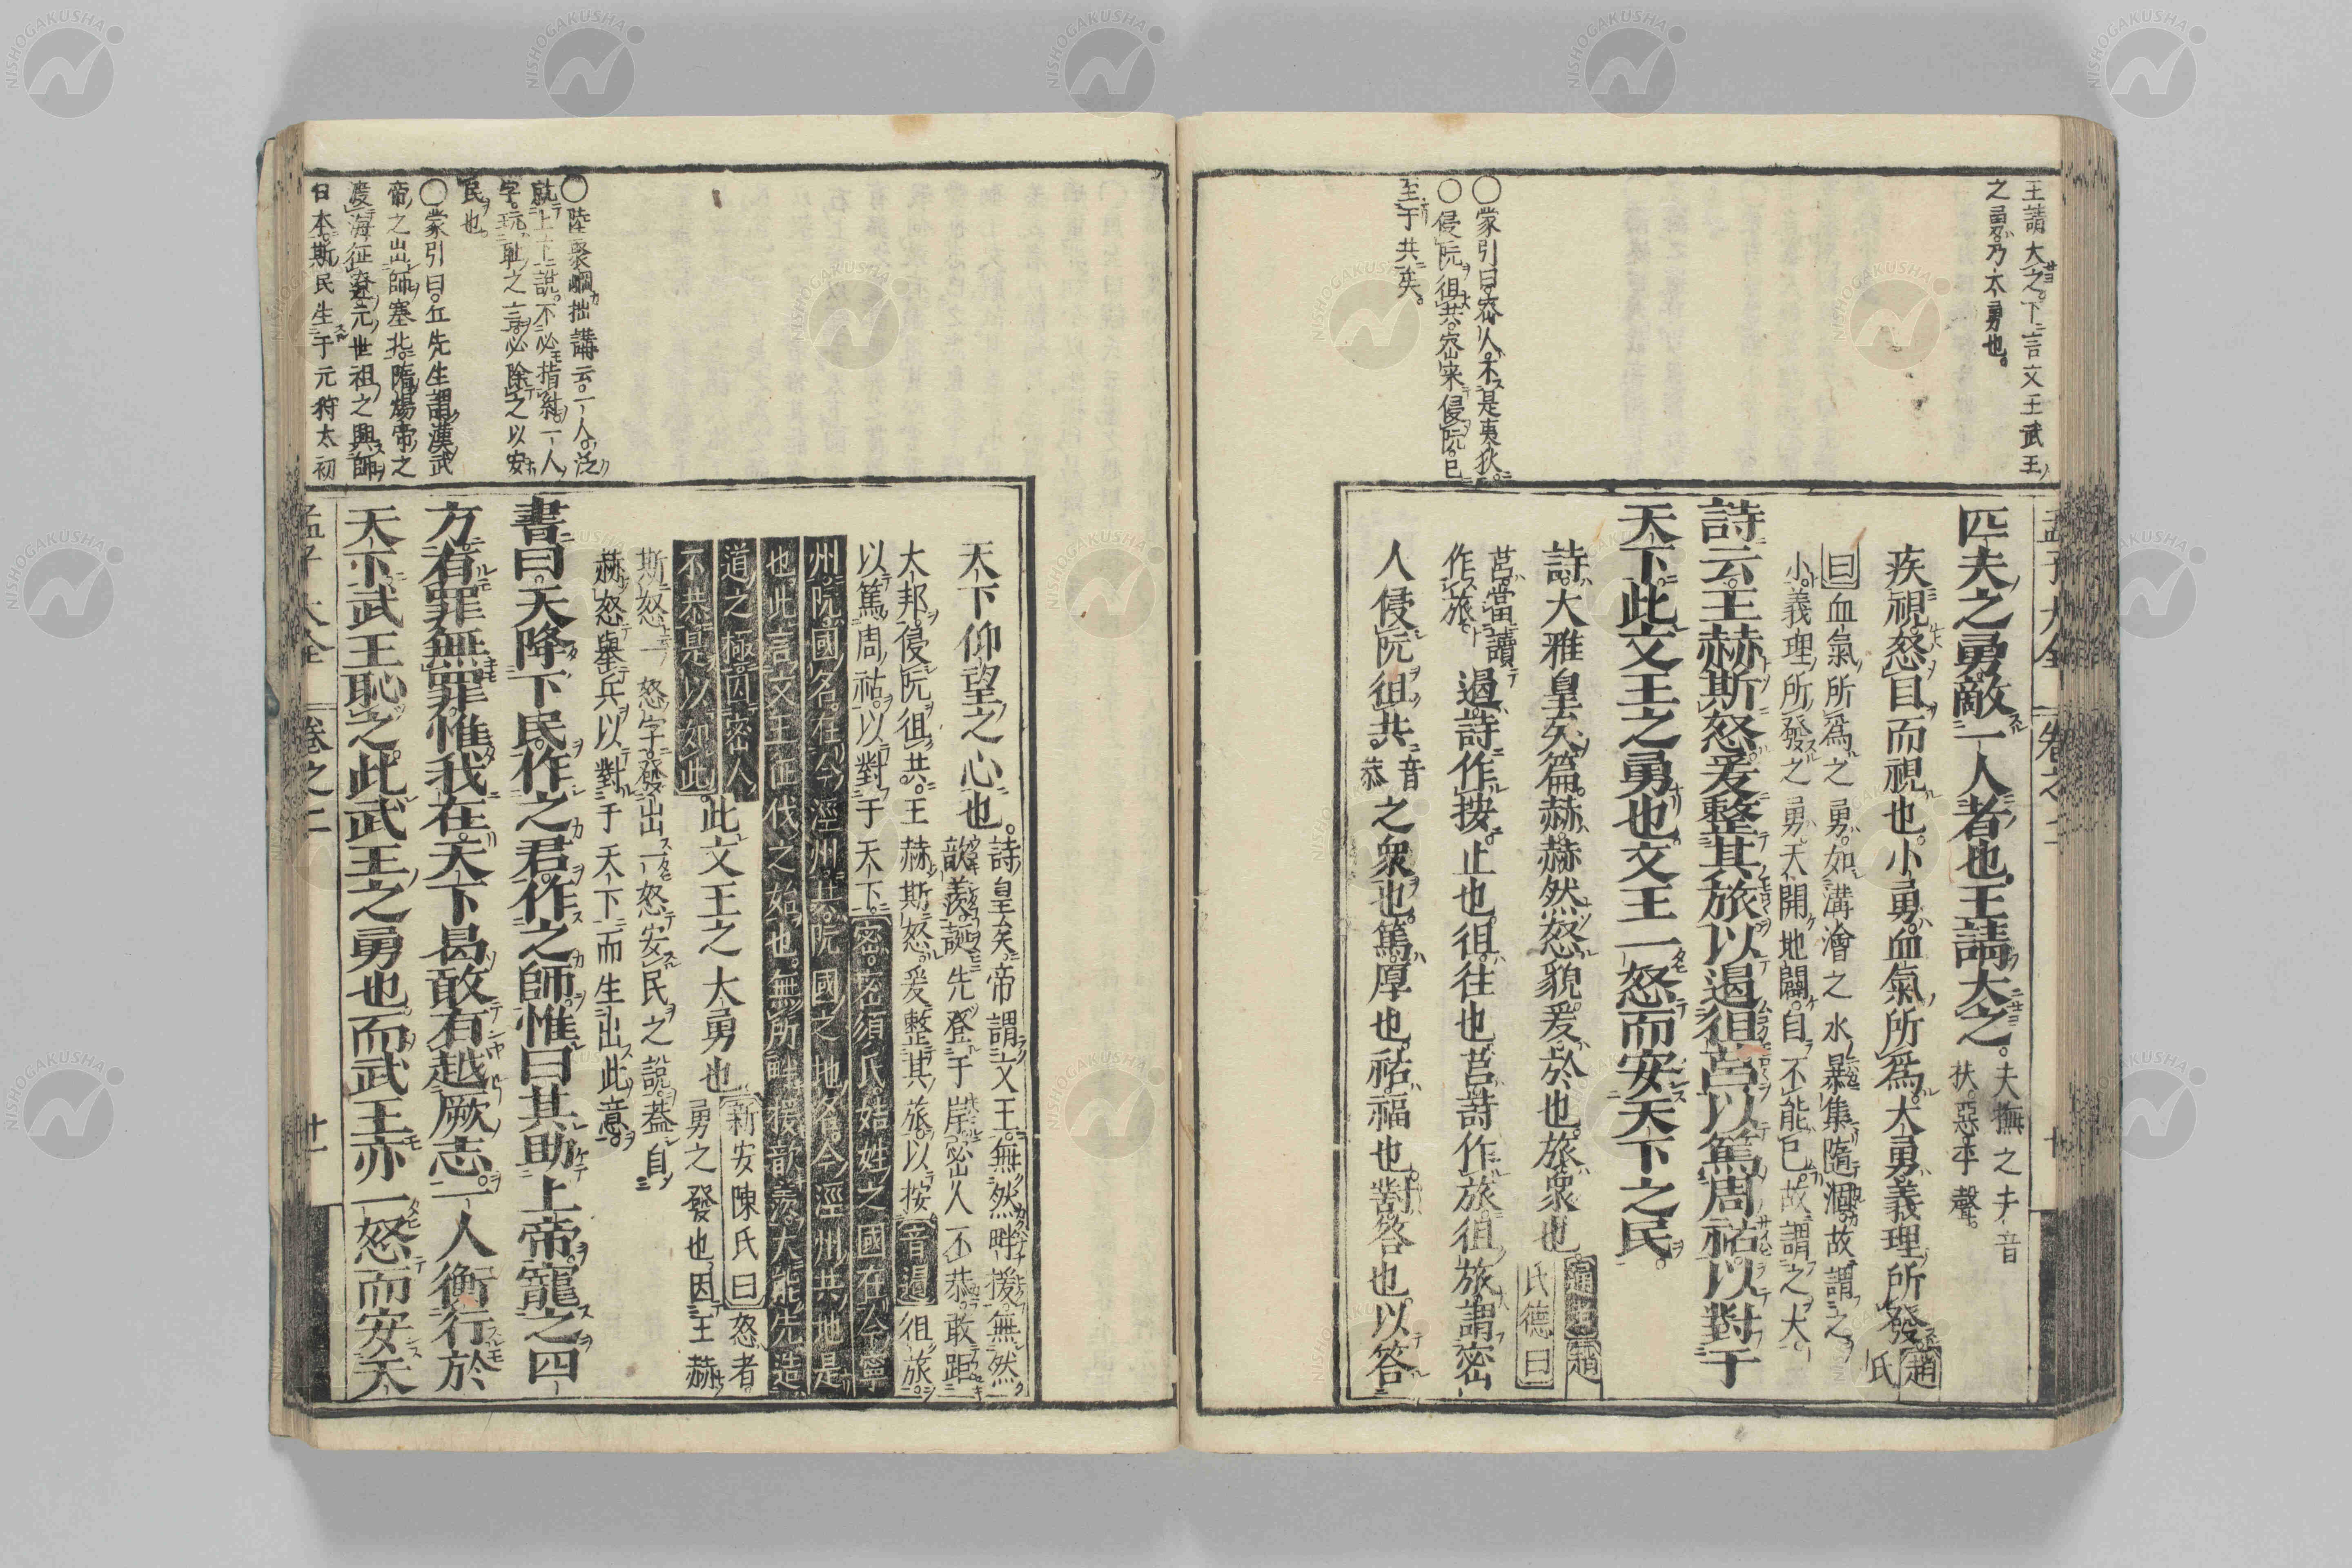 王請大之下言文王武王
之勇乃大勇也
○蒙引曰密人不是夷狄
○侵阮徂共密宋侵阮已
至于共矣
孟子大全 卷之二
匹夫之勇敵一人者也王請大之
夫撫之夫音
扶惡平聲
疾視怒目而視也小勇血氣所爲大勇義理所發
趙氏
曰血氣所爲之勇如溝澮之水暴集隨涸故謂之
小義理所發之勇天開地闢自不能已故謂之大
詩云王赫斯怒爰整其旅以遏徂莒以篤周祜以對于
天下此文王之勇也文王一怒而安天下之民
詩大雅皇矣篇赫赫然怒貌爰於也旅衆也
通考趙
氏德曰
莒當讀
作旅
遏詩作按止也徂往也莒詩作旅徂旅謂密
人侵阮徂共
音
恭
之衆也篤厚也祜福也對答也以答
天下仰望之心也
詩皇矣帝謂文王無然畔援無然
歆羨誕先登于岸密人不恭敢距
大邦侵阮徂共王赫斯怒爰整其旅以按音遏徂旅
以篤周祜以對于天下密密須氏姞姓之國在今寧
州阮國名在今涇州共阮國之地名今涇州共地是
也此言文王征伐之始也無所畔援歆羨大能先造
道之極因密人
不恭是以如此
此文王之大勇也
新安陳氏曰怒者
勇之發也因王赫
斯怒一怒字發出一怒安民之說蓋自
赫怒擧兵以對于天下而生出此意
書曰天降下民作之君作之師惟曰其助上帝寵之四
方有罪無罪惟我在天下曷敢有越厥志一人衡行於
天下武王恥之此武王之勇也而武王亦一怒而安天
孟子大全 卷之二 廿一
○陸聚岡拙講云一人泛
就上上說不必指紂一人
字玩耻之二言必除之以安
民也
○蒙引曰丘先生謂漢武
帝之出師塞北隋煬帝之
渡海征遼元世祖之興師
日本斯民生于元狩太初